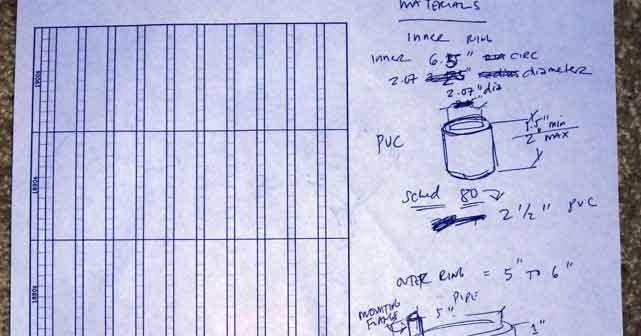 MATERIALS
INNER RING
INNER 6.5" CIRC
2.07 diameter
2.07" dia
1.5" min
2" MAX
PVC
Sched 80
2 1/2" PVC
OUTER RING = 5" TO 6"
PIPE
MOUNTING FLANGE
5"
1"
1900s
1890s
1880s